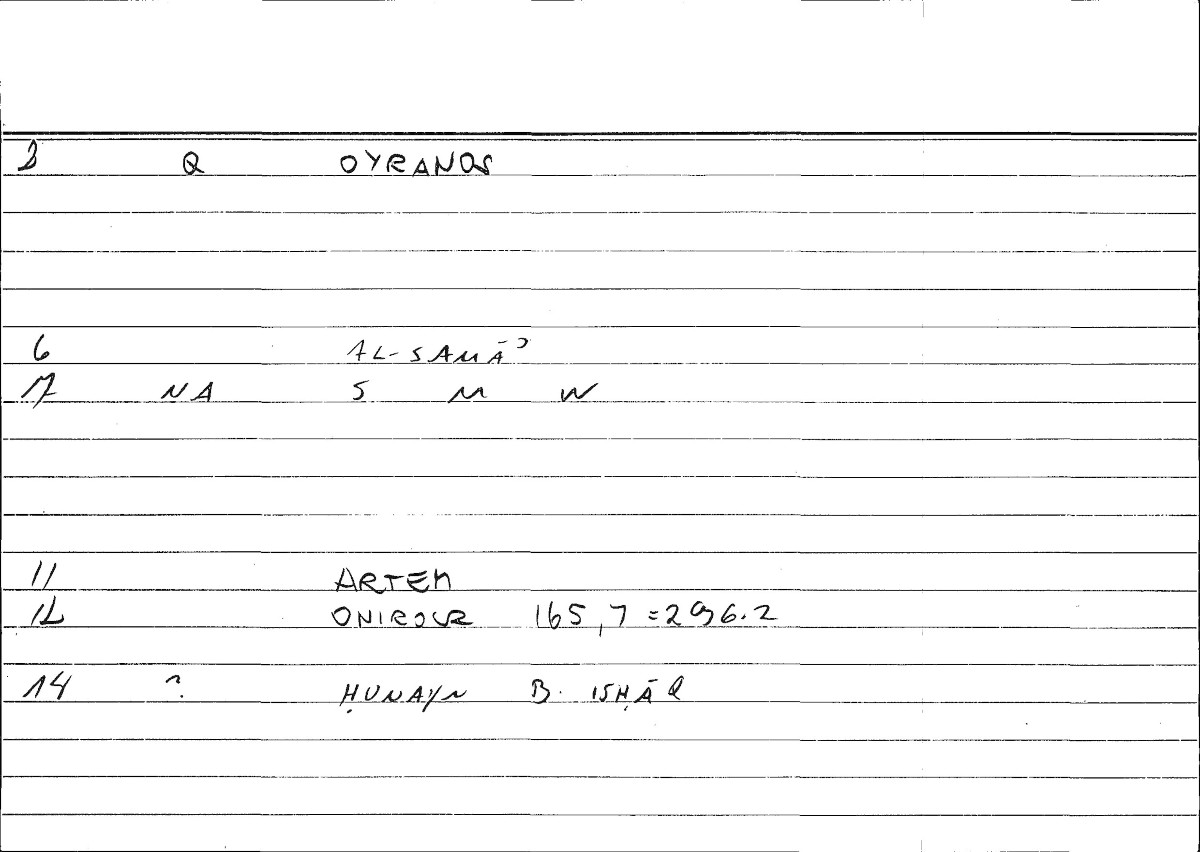 3 Q OYRANOS
6 AL-SAMĀʾ
17 NA S M W
11 ARTEM
12 ONIROCR 165,7=296.2
14 ? ḤUNAYN B. ISḤĀQ